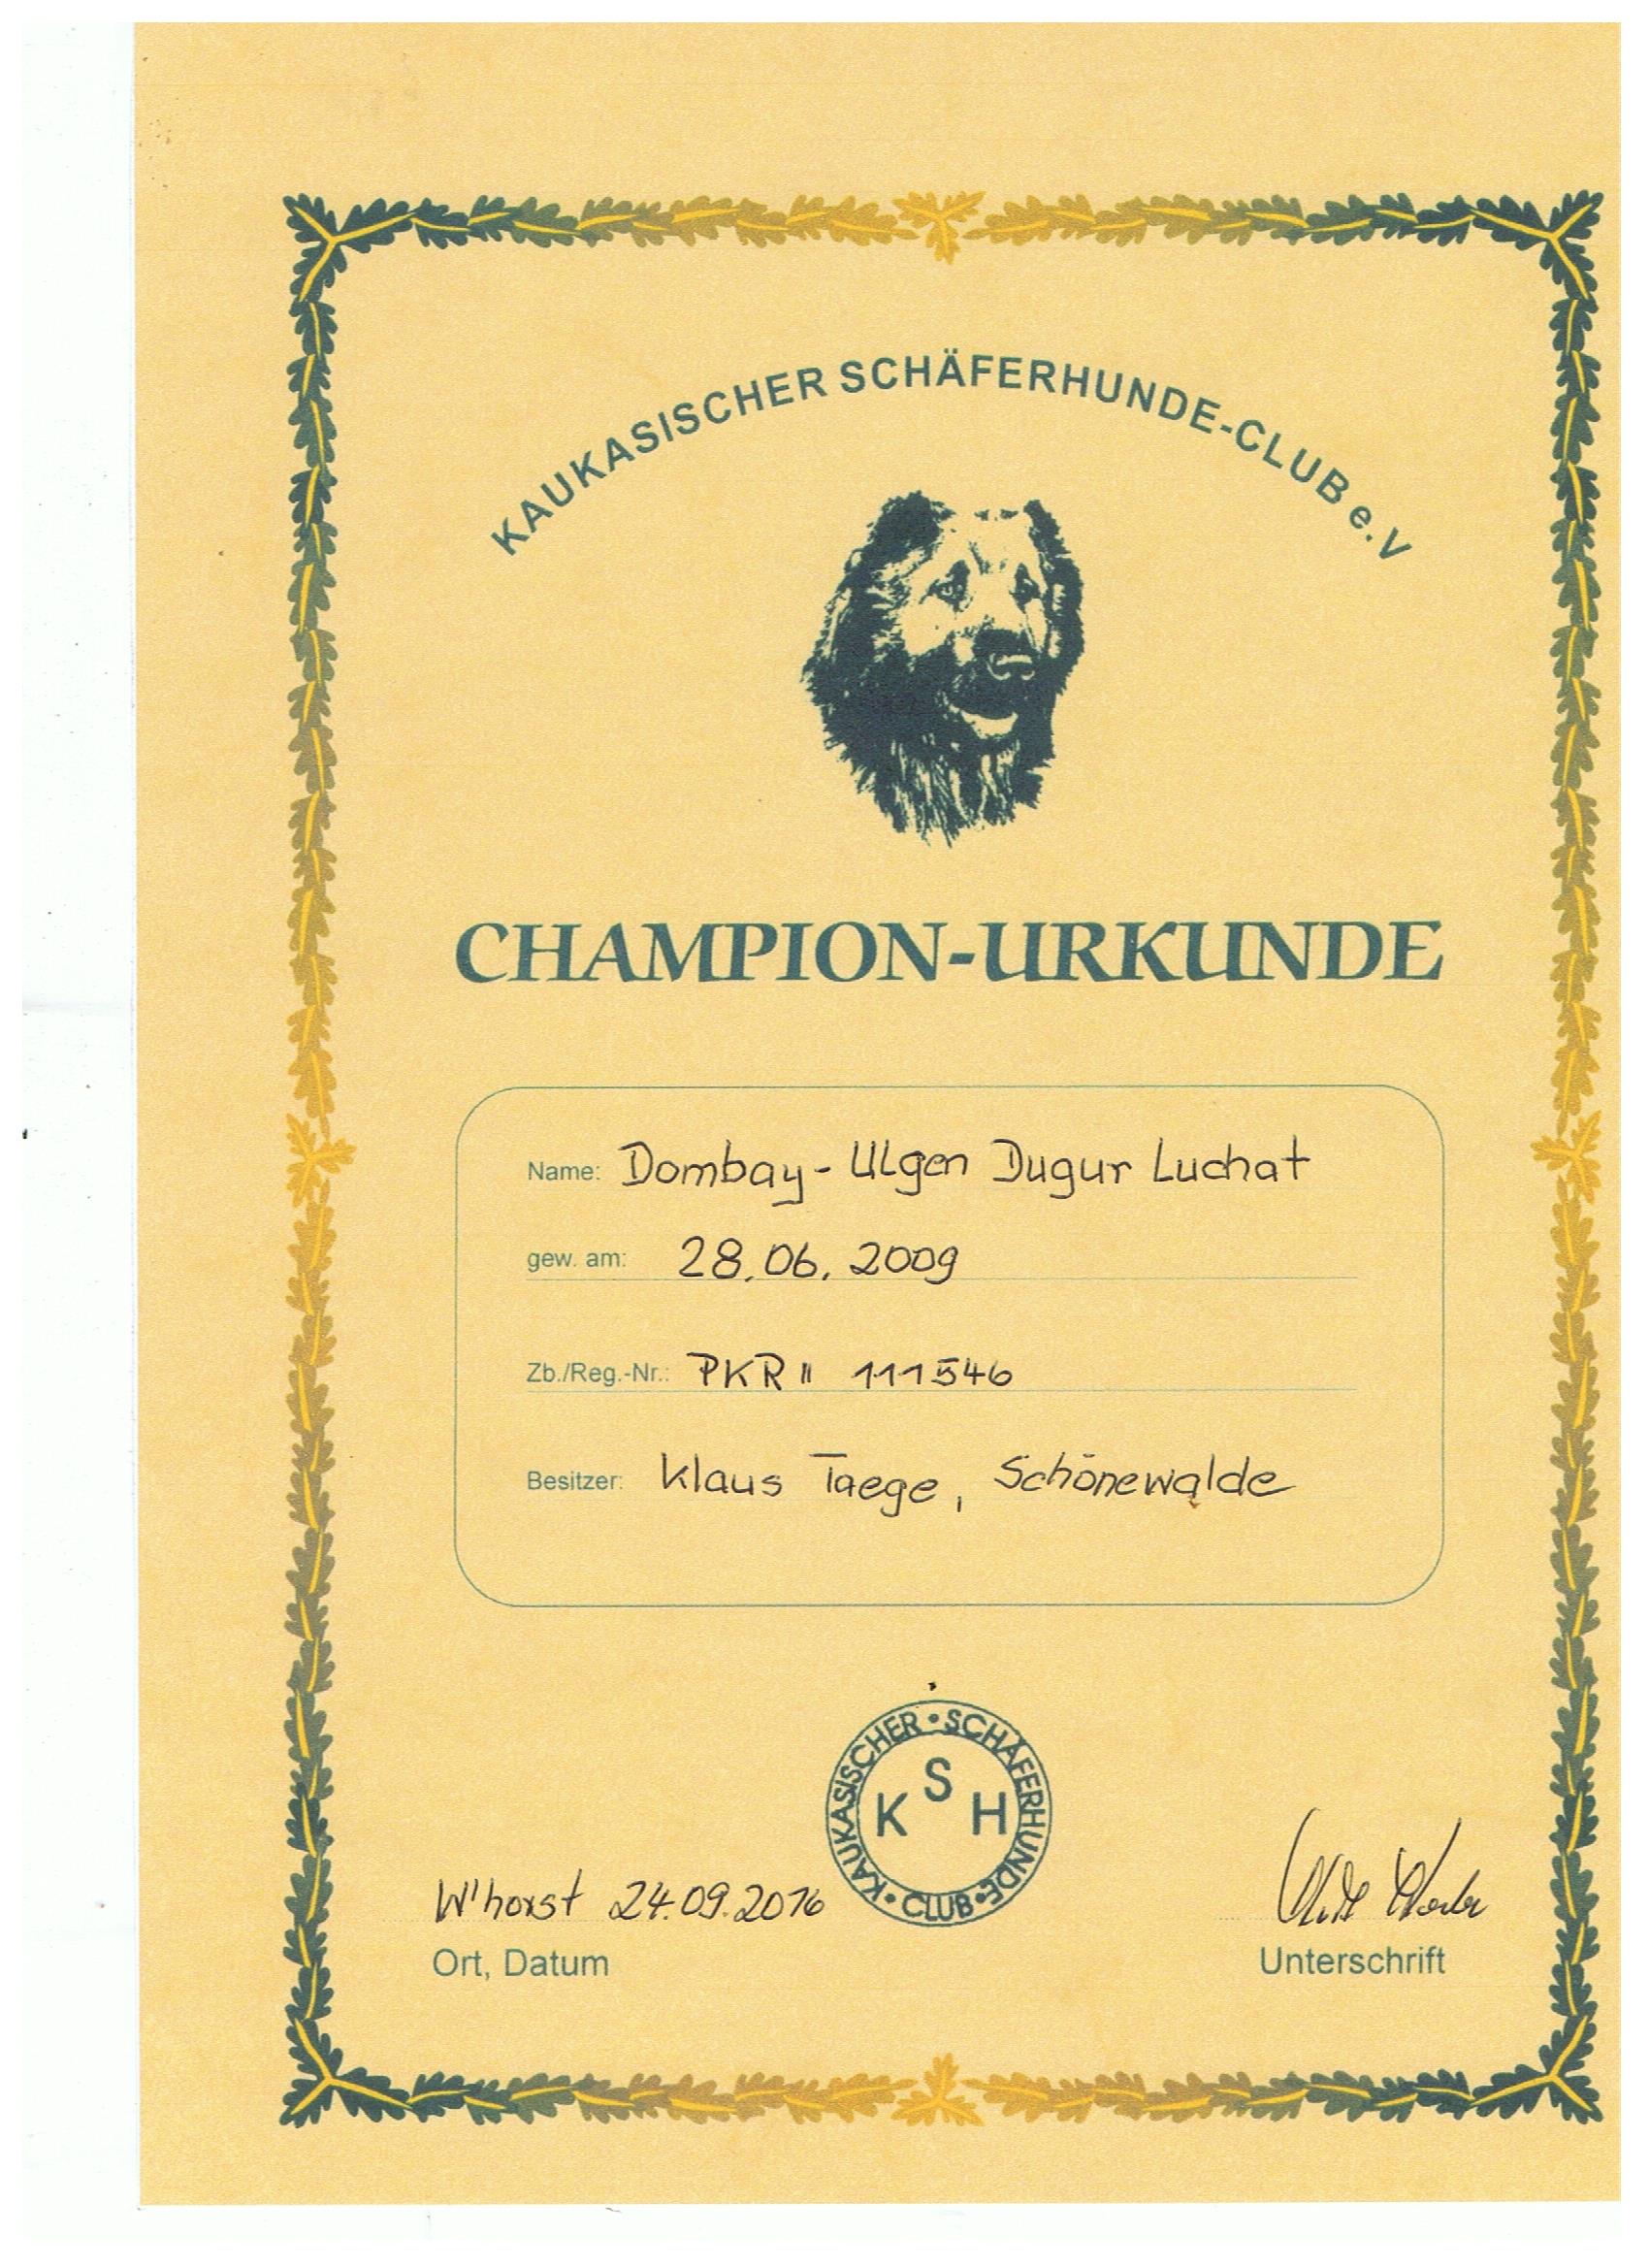 KAUKASISCHER SCHÄFERHUNDE-CLUB e.V
CHAMPION-URKUNDE
Name: Dombay-Ulgen Dugur Luchat
gew. am: 28.06.2009
Zb./Reg.-Nr.: PKR II 111546
Besitzer: Klaus Taege, Schönewalde
KAUKASISCHER · SCHÄFERHUNDE · CLUB ·
K S H
W'horst 24.09.2016
Ort, Datum
Unterschrift